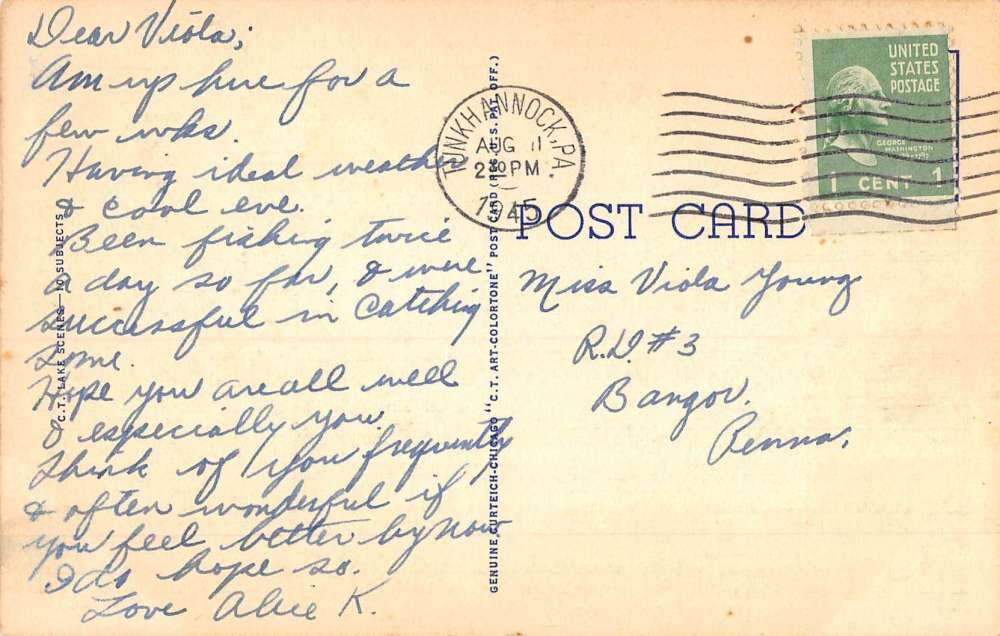 Dear Viola;
Am up here for a
few wks.
Having ideal weather
& cool eve.
Been fishing twice
a day so far, & were
successful in catching
some.
Hope you are all well
& especially you.
Think of you frequently
& often wonderful if
you feel better by now
I do hope so.
Love Alice K.
C.T. LAKE SCENES—10 SUBJECTS
GENUINE CURTEICH-CHICAGO "C.T. ART-COLORTONE" POST CARD (REG. U.S. PAT. OFF.)
TUNKHANNOCK, PA.
AUG 11
2 PM
1945
UNITED
STATES
POSTAGE
GEORGE
WASHINGTON
1 CENT 1
POST CARD
Miss Viola Young
R.D. #3
Bangor.
Penna.